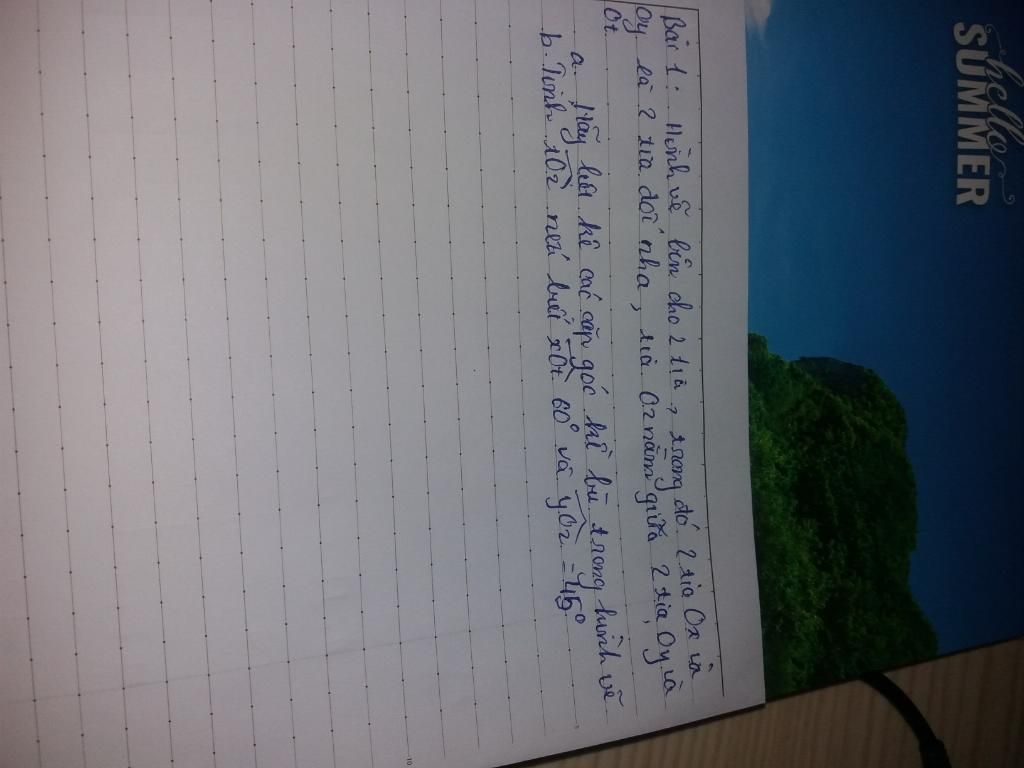 hello
SUMMER
Bài 1: Hình vẽ bên cho 2 tia, trong đó 2 tia Ox và
Oy là 2 tia đối nha, tia Oz nằm giữa 2 tia, Oy và
Ot
a. Hãy liệt kê các cặp góc kề bù trong hình vẽ
b. Tính tOz nếu biết xOt 60° và yOz = 45°
10